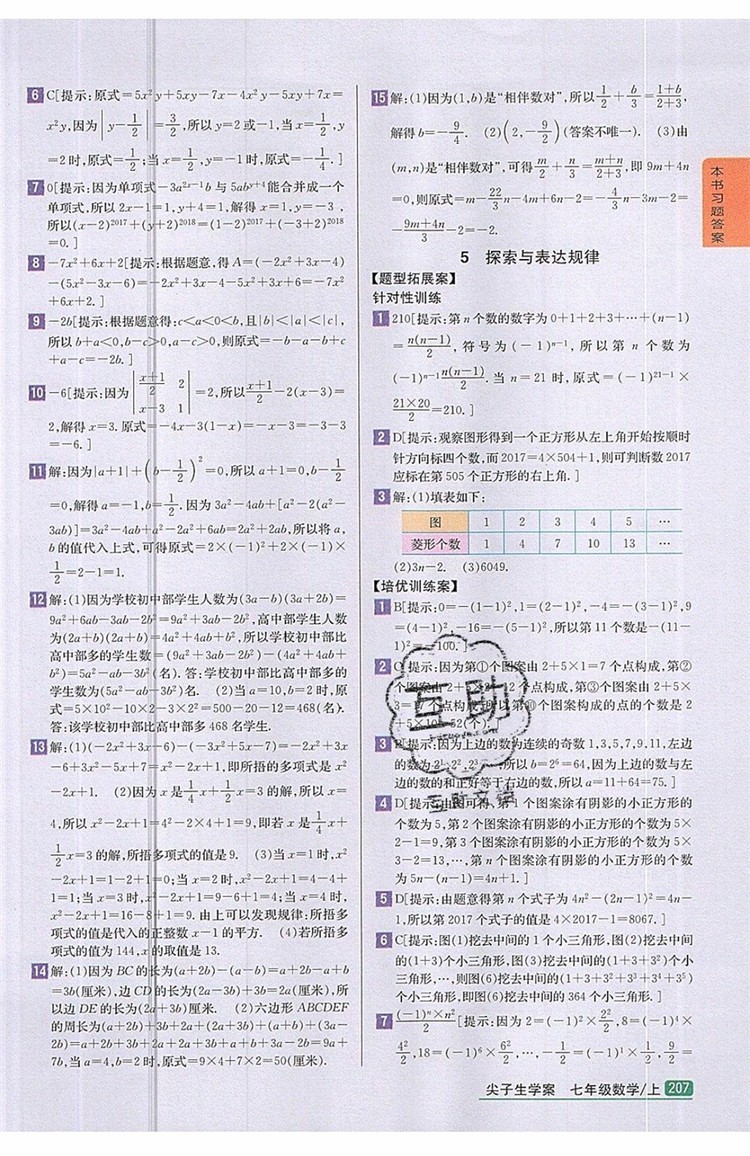 6 C[提示:原式=5x²y+5xy-7x-4x²y-5xy+7x=
x²y,因为|y-1/2|=3/2,所以y=2或-1,当x=1/2,y
=2时,原式=1/2;当x=1/2,y=-1时,原式=-1/4.]
7 0[提示:因为单项式-3a²ˣ⁻¹b与5abʸ⁺⁴能合并成一个
单项式,所以2x-1=1,y+4=1,解得x=1,y=-3,
所以(x-2)²⁰¹⁷+(y+2)²⁰¹⁸=(1-2)²⁰¹⁷+(-3+2)²⁰¹⁸
=0.]
8 -7x²+6x+2[提示:根据题意,得A=(-2x²+3x-4)
-(5x²-3x-6)=-2x²+3x-4-5x²+3x+6=-7x²
+6x+2.]
9 -2b[提示:根据题意得:c<a<0<b,且|b|<|a|<|c|,
所以b+a<0,b-c>0,a-c>0,则原式=-b-a-b+c
+a-c=-2b.]
10 -6[提示:因为|(x+1)/2 2 x-3 1|=2,所以(x+1)/2-2(x-3)=
2,解得x=3.原式=-4x-3(1-x)=-x-3=-3-3
=-6.]
11 解:因为|a+1|+(b-1/2)²=0,所以a+1=0,b-1/2
=0,解得a=-1,b=1/2.因为3a²-4ab+[a²-2(a²-
3ab)]=3a²-4ab+a²-2a²+6ab=2a²+2ab,所以将a,
b的值代入上式,可得原式=2×(-1)²+2×(-1)×
1/2=2-1=1.
12 解:(1)因为学校初中部学生人数为(3a-b)(3a+2b)=
9a²+6ab-3ab-2b²=9a²+3ab-2b²,高中部学生人数
为(2a+b)(2a+b)=4a²+4ab+b²,所以学校初中部比
高中部多的学生数=(9a²+3ab-2b²)-(4a²+4ab+
b²)=5a²-ab-3b²(名).答:学校初中部比高中部多的
学生数为(5a²-ab-3b²)名. (2)当a=10,b=2时,原
式=5×10²-10×2-3×2²=500-20-12=468(名).
答:该学校初中部比高中部多468名学生.
13 解:(1)(-2x²+3x-6)-(-3x²+5x-7)=-2x²+3x
-6+3x²-5x+7=x²-2x+1,即所捂的多项式是x²
-2x+1. (2)因为x是1/4x+1/4x+1=3的解,所以x=
4,所以x²-2x+1=4²-2×4+1=9,即若x是1/4x+
1/2x=3的解,所捂多项式的值是9. (3)当x=1时,x²
-2x+1=1-2+1=0;当x=2时,x²-2x+1=4-4+
1=1;当x=3时,x²-2x+1=9-6+1=4;当x=4时,
x²-2x+1=16-8+1=9.由上可以发现规律:所捂多
项式的值是代入的正整数x-1的平方. (4)若所捂多
项式的值为144,x的取值是13.
14 解:(1)因为BC的长为(a+2b)-(a-b)=a+2b-a+b
=3b(厘米),边CD的长为(2a-3b)+3b=2a(厘米),所
以边DE的长为(2a+3b)厘米. (2)六边形ABCDEF
的周长为(a+2b)+3b+2a+(2a+3b)+(a+b)+(3a-
2b)=a+2b+3b+2a+2a+3b+a+b+3a-2b=9a+
7b,当a=4,b=2时,原式=9×4+7×2=50(厘米).
15 解:(1)因为(1,b)是“相伴数对”,所以1/2+b/3=(1+b)/(2+3),
解得b=-9/4. (2)(2,-9/2)(答案不唯一). (3)由
(m,n)是“相伴数对”,可得m/2+n/3=(m+n)/(2+3),即9m+4n
=0,则原式=m-22/3n-4m+6n-2=-4/3n-3m-2=
-(9m+4n)/3-2=-2.
5 探索与表达规律
【题型拓展案】
针对性训练
1 210[提示:第n个数的数字为0+1+2+3+…+(n-1)
=n(n-1)/2,符号为(-1)ⁿ⁻¹,所以第n个数为
(-1)ⁿ⁻¹n(n-1)/2.当n=21时,原式=(-1)²¹⁻¹×
21×20/2=210.]
2 D[提示:观察图形得到一个正方形从左上角开始按顺时
针方向标四个数,而2017=4×504+1,则可判断数2017
应标在第505个正方形的右上角.]
3 解:(1)填表如下:
图 1 2 3 4 5 …
菱形个数 1 4 7 10 13 …
(2)3n-2. (3)6049.
【培优训练案】
1 B[提示:0=-(1-1)²,1=(2-1)²,-4=-(3-1)²,9
=(4-1)²,-16=-(5-1)²,所以第11个数是-(11-
1)²=-100.]
2 C[提示:因为第①个图案由2+5×1=7个点构成,第②
个图案由2+5×2=12个点构成,第③个图案由2+5×
3=17个点构成,所以第⑩个图案构成的点的个数是2
+5×10=52(个).]
3 B[提示:因为上边的数为连续的奇数1,3,5,7,9,11,左边
的数为2¹,2²,2³,…,所以b=2⁶=64,因为上边的数与左
边的数的和正好等于右边的数,所以a=11+64=75.]
4 D[提示:由图可得,第1个图案涂有阴影的小正方形的
个数为5,第2个图案涂有阴影的小正方形的个数为5×
2-1=9,第3个图案涂有阴影的小正方形的个数为5×
3-2=13,…,第n个图案涂有阴影的小正方形的个数
为5n-(n-1)=4n+1.]
5 D[提示:由题意得第n个式子为4n²-(2n-1)²=4n-
1,所以第2017个式子的值是4×2017-1=8067.]
6 C[提示:图(1)挖去中间的1个小三角形,图(2)挖去中间
的(1+3)个小三角形,图(3)挖去中间的(1+3+3²)个小
三角形,…,则图(6)挖去中间的(1+3+3²+3³+3⁴+3⁵)
个小三角形,即图(6)挖去中间的364个小三角形.]
7 (-1)ⁿ×n²/2[提示:因为2=(-1)²×2²/2,8=(-1)⁴×
4²/2,18=(-1)⁶×6²/2,…,-1/2=(-1)¹×1²/2,-9/2=
本书习题答案
互助
互助文学
尖子生学案 七年级数学/上 207